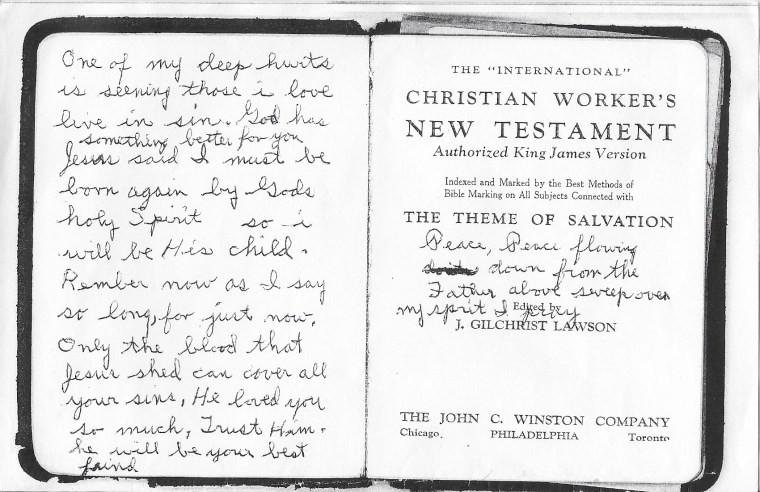 One of my deep hurts
is seening those i love
live in sin. God has
something better for you
Jesus said I must be
born again by Gods
holy Spirit so i
will be His child.
Rember now as I say
so long, for just now.
Only the blood that
Jesus shed can cover all
your sins, He loved you
so much, Trust Him.
he will be your best
faind
THE "INTERNATIONAL"
CHRISTIAN WORKER'S
NEW TESTAMENT
Authorized King James Version
Indexed and Marked by the Best Methods of
Bible Marking on All Subjects Connected with
THE THEME OF SALVATION
Peace, Peace flowing
down from the
Father above sweep over
my sprit I
Edited by
J. GILCHRIST LAWSON
THE JOHN C. WINSTON COMPANY
Chicago. PHILADELPHIA Toronto